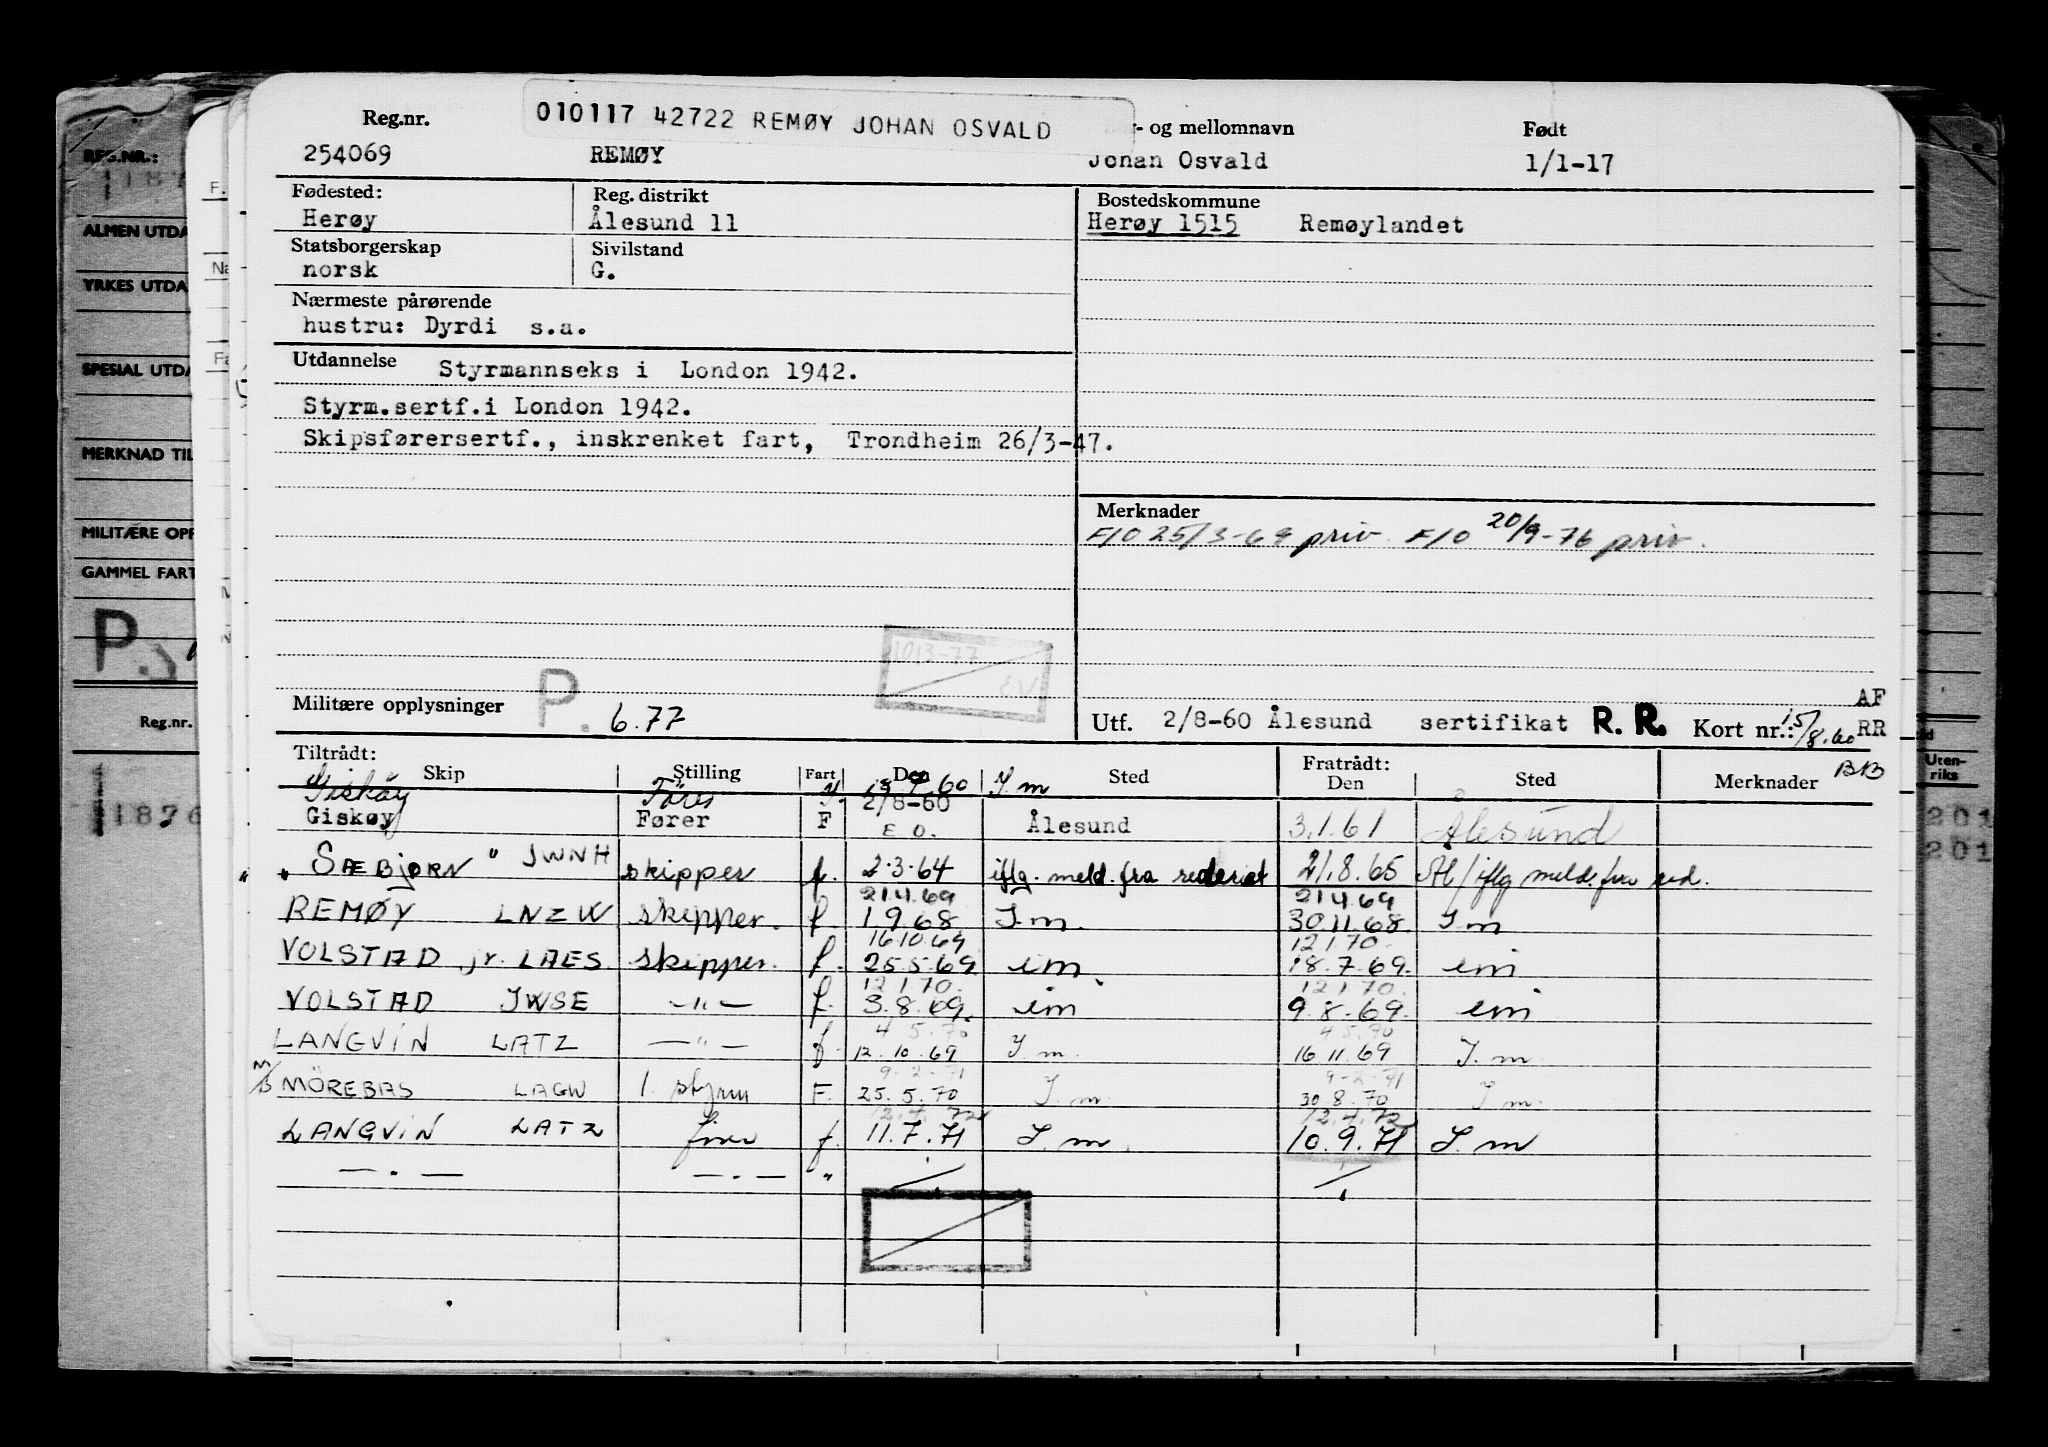 010117 42722 REMØY JOHAN OSVALD
Reg.nr. - og mellomnavn Født
254069 REMØY Johan Osvald 1/1-17
Fødested: Reg. distrikt Bostedskommune
Herøy Ålesund 11 Herøy 1515 Remøylandet
Statsborgerskap Sivilstand
norsk G.
Nærmeste pårørende
hustru: Dyrdi s.a.
Utdannelse Styrmannseks i London 1942.
Styrm.sertf.i London 1942.
Skipsførersertf., inskrenket fart, Trondheim 26/3-47.
Merknader
F/O 25/3-69 priv. F/O 20/9-76 priv.
Militære opplysninger P. 6.77
Utf. 2/8-60 Ålesund sertifikat R. R. Kort nr.: 15/8.60 AF RR
BB
Tiltrådt: Fratrådt:
Skip Stilling Fart Den Sted Den Sted Merknader
Giskøy Fører I.m
2/8-60
Giskøy Fører F E O. Ålesund 3.1.61 Ålesund
" SÆBJØRN " JWNH skipper f. 2.3.64 iflg. meld. fra rederiet 21.8.65 iflg meld. fra red.
21.4.69 21.4.69
REMØY LNZW skipper. f. 1.9.68 I.m. 30.11.68. I.m
16.10.69 12.1.70
VOLSTAD jr. LAES skipper. f. 25.5.69 im. 18.7.69. im
12.1.70. 12.1.70.
VOLSTAD JWSE —"— f. 3.8.69. im 9.8.69. im
4.5.70 4.5.70
LANGVIN LATZ —"— f 12.10.69 I.m. 16.11.69 I.m.
9-2-71 9-2-71
M/S MÖREBAS LAGW 1. styrm F. 25.5.70 I.m. 30.8.70 I.m.
12.4.72 12.4.72
LANGVIN LATZ f. 11.7.71 I.m. 10.9.71 I.m
— " — — " — "
REG.NR.:
ALMEN UTDA
YRKES UTDA
SPESIAL UTDA
MERKNAD TIL
MILITÆRE OPP
GAMMEL FART
P.
Reg.nr.
1876
Uten-
riks
201
201